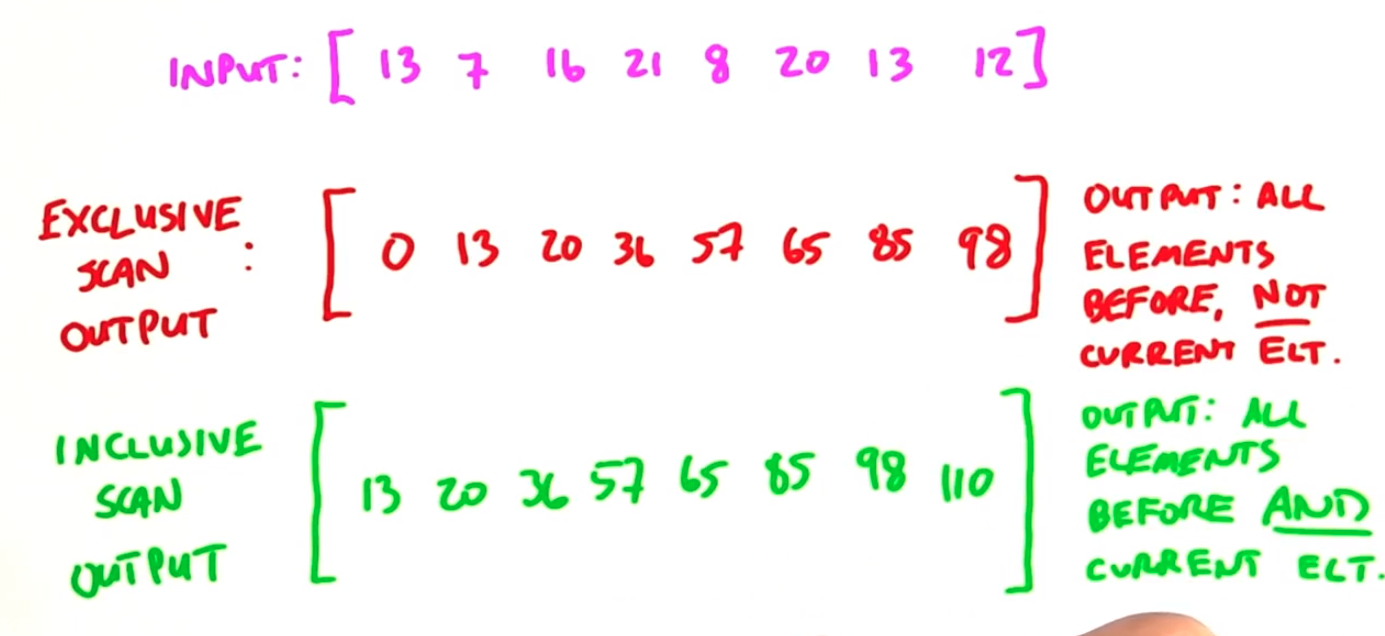 INPUT: [ 13 7 16 21 8 20 13 12 ]
EXCLUSIVE
SCAN :
OUTPUT
[ 0 13 20 36 57 65 85 98 ]
OUTPUT: ALL
ELEMENTS
BEFORE, NOT
CURRENT ELT.
INCLUSIVE
SCAN
OUTPUT
[ 13 20 36 57 65 85 98 110 ]
OUTPUT: ALL
ELEMENTS
BEFORE AND
CURRENT ELT.